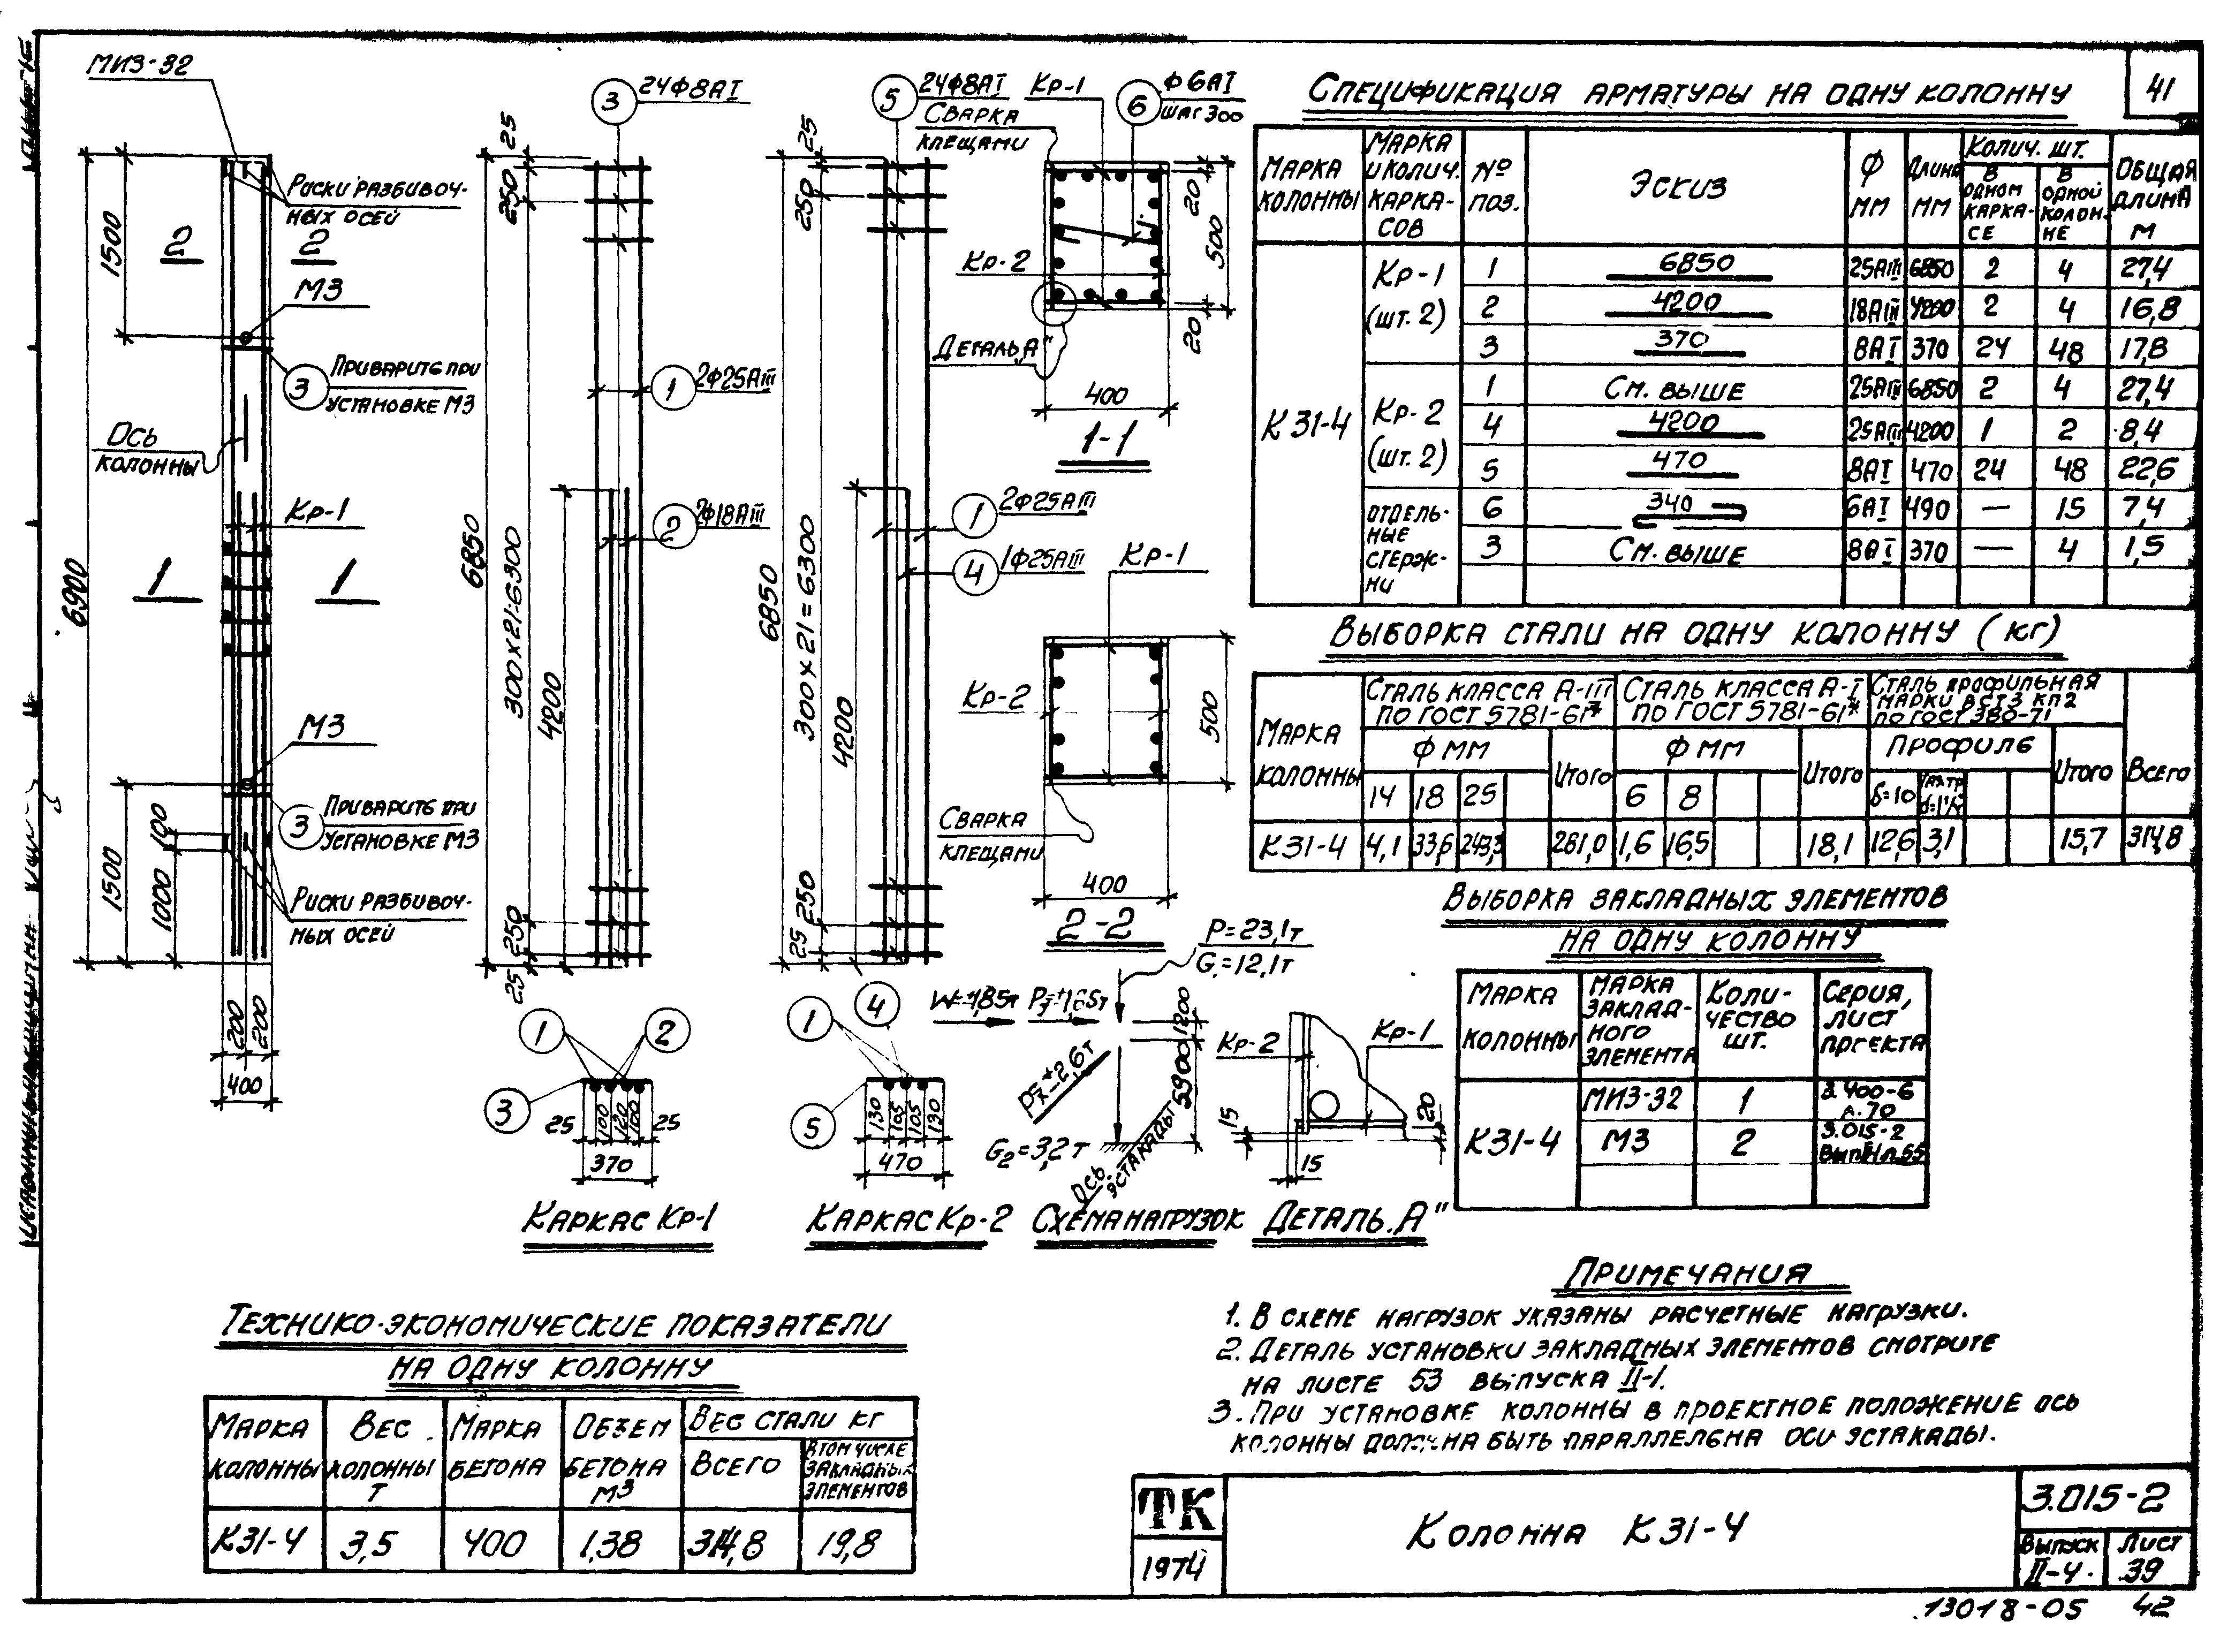 41
МИЗ-32
Риски разбивоч-
ных осей
1500
2 2
М3
3 Приварить при
установке М3
Ось
колонны
Кр-1
6900
1 1
М3
3 Приварить при
установке М3
100
1500
1000
Риски разбивоч-
ных осей
200 200
400
3 24Ф8АI
25
250
6850
300×21=6300
4200
1 2Ф25АIII
2 2Ф18АIII
250
25
1 2
3
25 100 120 100 25
370
Каркас Кр-1
5 24Ф8АI
25
250
6850
300×21=6300
4200
1 2Ф25АIII
4 1Ф25АIII
250
25
1 4
5
130 105 105 130
470
Каркас Кр-2
Кр-1
6 Ф6АI
шаг 300
Сварка
клещами
Кр-2
20
500
20
Деталь „А"
400
1-1
Кр-1
Кр-2
500
Сварка
клещами
400
2-2
P=23,1т
G1=12,1т
1200
5900
G2=3,2т
Ось
эстакады
Схема нагрузок
Кр-2
Кр-1
15
20
15
Деталь „А"
Спецификация арматуры на одну колонну
Марка колонны
Марка и колич. каркасов
№ поз.
Эскиз
Ф мм
Длина мм
Колич. шт.
в одном каркасе
в одной колонне
Общая длина м
К31-4
Кр-1 (шт. 2)
1 6850 25АIII 6850 2 4 27,4
2 4200 18АIII 4200 2 4 16,8
3 370 8АI 370 24 48 17,8
Кр-2 (шт. 2)
1 См. выше 25АIII 6850 2 4 27,4
4 4200 25АIII 4200 1 2 8,4
5 470 8АI 470 24 48 22,6
Отдельные стержни
6 340 6АI 490 — 15 7,4
3 См. выше 8АI 370 — 4 1,5
Выборка стали на одну колонну (кг)
Марка колонны
Сталь класса А-III по ГОСТ 5781-61*
Сталь класса А-I по ГОСТ 5781-61*
Сталь профильная марки ВСт3 кп2 по ГОСТ 380-71
Ф мм Итого Ф мм Итого Профиль Итого Всего
14 18 25 6 8 δ=10
К31-4 4,1 33,6 243,3 281,0 1,6 16,5 18,1 12,6 3,1 15,7 314,8
Выборка закладных элементов
на одну колонну
Марка колонны
Марка закладного элемента
Количество шт.
Серия, лист проекта
К31-4
МИЗ-32 1 3.400-6 л.70
М3 2 3.015-2
Примечания
1. В схеме нагрузок указаны расчетные нагрузки.
2. Деталь установки закладных элементов смотрите
на листе 53 выпуска II-1.
3. При установке колонны в проектное положение ось
колонны должна быть параллельна оси эстакады.
Технико-экономические показатели
на одну колонну
Марка колонны
Вес колонны т
Марка бетона
Объем бетона м3
Вес стали кг
Всего
В том числе закладных элементов
К31-4 3,5 400 1,38 314,8 19,8
ТК
1974
Колонна К31-4
3.015-2
Выпуск II-4
Лист 39
13018-05 42